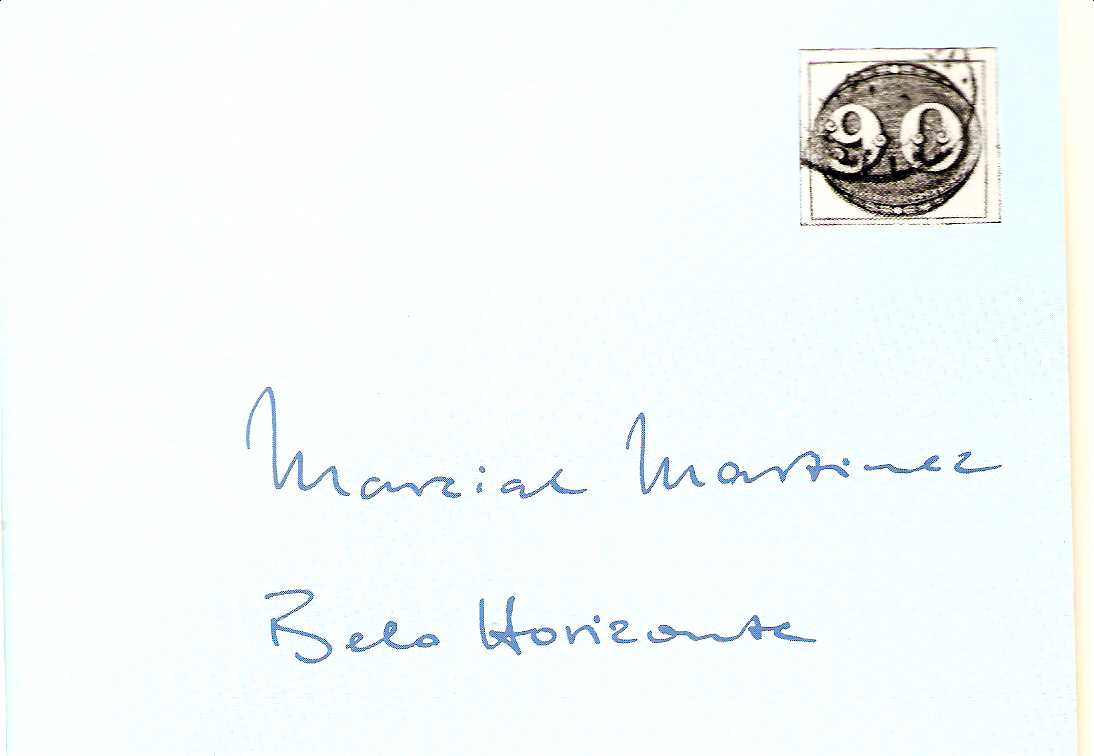 90
Marzial Martinez
Belo Horizonte